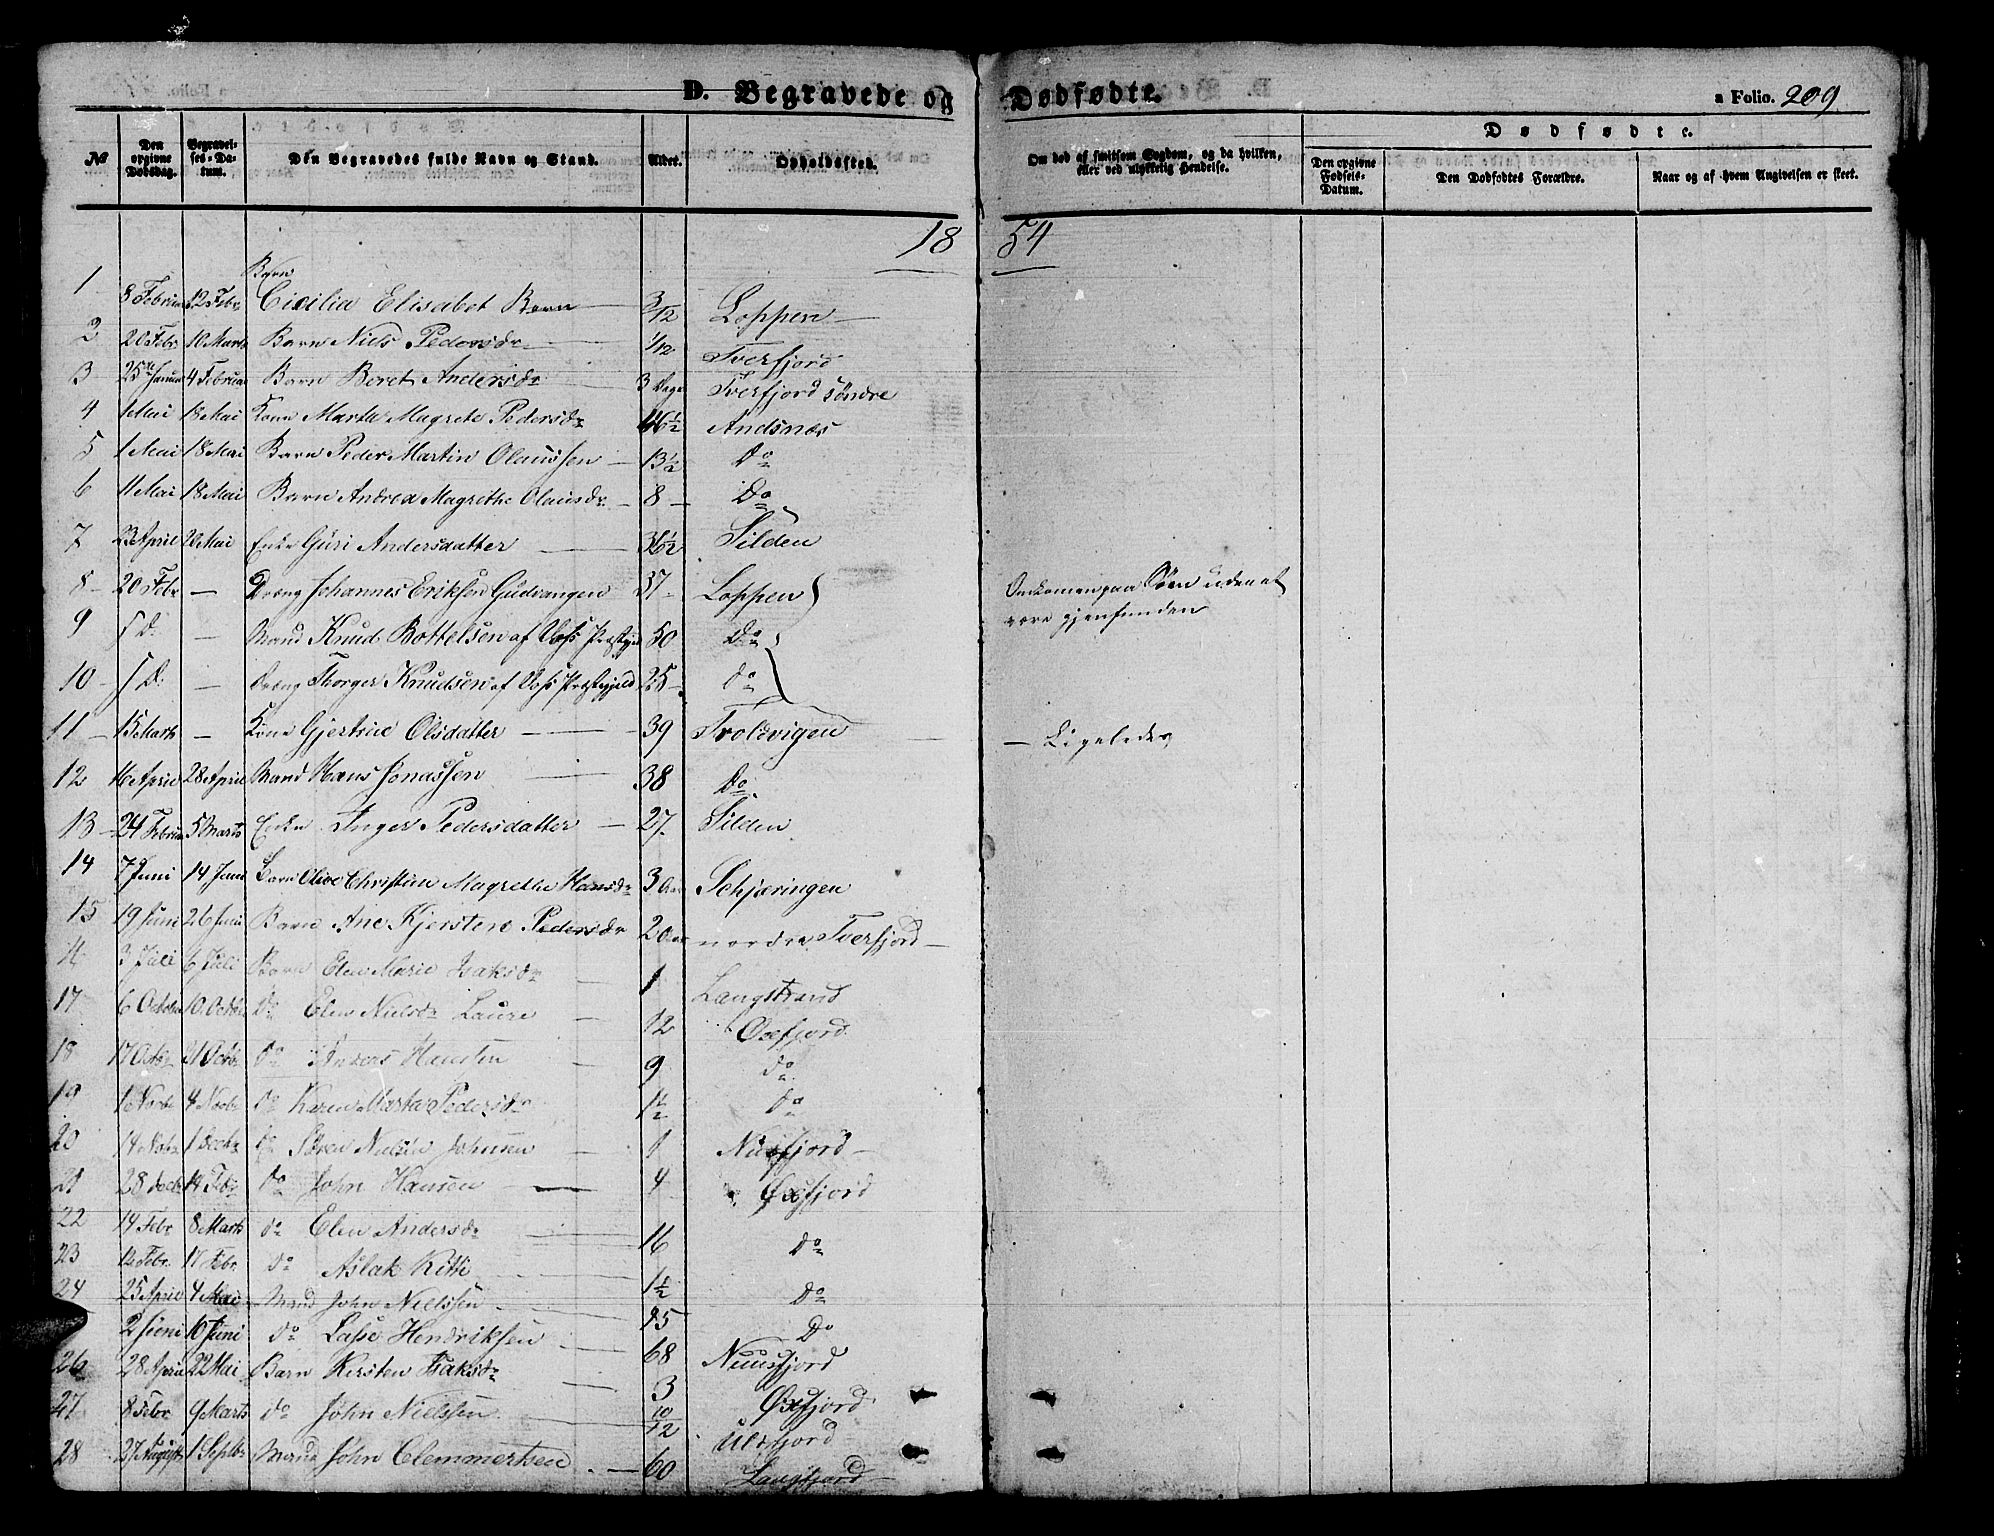 D. Begravede og Dødfødte.
a Folio. 209
No
Den opgivne Dødsdag.
Begravelses-Datum.
Den Begravedes fulde Navn og Stand.
Alder.
Opholdssted.
Om død af smitsom Sygdom, og da hvilken, eller ved ulykkelig Hendelse.
Dødfødte.
Den opgivne Fødsels-Datum.
Den Dødfødtes Forældre.
Naar og af hvem Angivelsen er skeet.
18 54
1 8 Februar 12 Febr Barn Cicilia Elisabet 3/12 Loppen
2 20 Febr 10 Marts Barn Niels Pedersdr 1/12 Tverfjord
3 25 Januar 4 Februar Barn Beret Andersdr 3 Dage Tverfjord søndre
4 1 Mai 18 Mai Kone Marta Magrete Pedersdr 46½ Andsnæs
5 1 Mai 18 Mai Barn Peder Martin Olaussen 13½ Do
6 11 Mai 18 Mai Barn Andrea Magrethe Olausdr 8 Do
7 23 April 20 Mai Enke Guri Andersdatter Silden
8 20 Febr — Dreng Johannes Eriksen Gudvangen 37 Loppen Omkommen paa Søen uden at
9 — Mand Knud Bottelsen af Voss Præstgjeld 50 Do være gjenfunden
10 — Dreng Thorger Knudsen af Voss Præstegjeld 25 Do
11 15 Marts — Kone Gjertrue Olsdatter 39 Troldvigen — Ligeledes
12 16 April 28 April Mand Hans Jonassen 38 Do
13 24 Februar 5 Marts Enke Inger Pedersdatter 27 Silden
14 7 Juni 14 Juni Barn Olive Christine Magrethe Hansdr 3 Aar Schjæringen
15 19 Juni 26 Juni Barn Ane Kjersten Pedersdr 2 Aar nordre Tverfjord
16 3 Juli 6 Juli Barn Elen Marie Isaksdr 1 Langstrand
17 6 October 10 Octbr Do Elen Nielsdr Laure 12 Øxfjord
18 17 Octbr 21 Octbr do Anders Hansen 9 do
19 1 Novbr 4 Novbr do Karen Marta Pedersdr 1½ do
20 14 Novbr 1 Decbr do Søren Nielsen Johnsen 1 Nuusfjord
21 28 Decbr 14 Febr do John Hansen 4 Øxfjord
22 14 Febr 8 Marts do Elen Andersdr 16 do
23 12 Febr 17 Febr do Aslak Kitti 1½ do
24 25 April 4 Mai Mand John Nielssen Do
2 Juni 10 Juni do Lasse Hendriksen 68 Nuusfjord
26 28 April 22 Mai Barn Kirsten Isaksdr 3 Øxfjord
27 8 Febr 9 Marts do John Nielssen 10/12 Ulsfjord
28 27 August 1 Septbr Mand John Clemmertsen 60 Langfjord